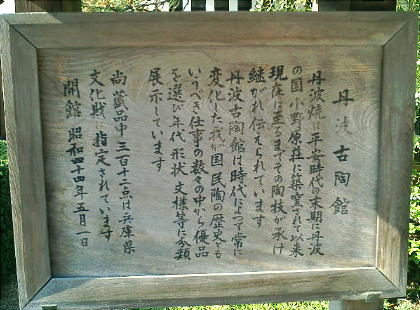 丹波古陶館
丹波焼は平安時代の末期に丹波
の国小野原荘に築窯されて以来
現在に至るまでその陶技が承け
継がれ伝えられています
丹波古陶館は時代によって常に
変化した我が国民陶の歴史とも
いうべき仕事の数々の中から優品
を選び年代形状文様等に分類
展示しています
尚蔵品中三百十二点は兵庫県
文化財に指定されています
開館 昭和四十四年五月一日